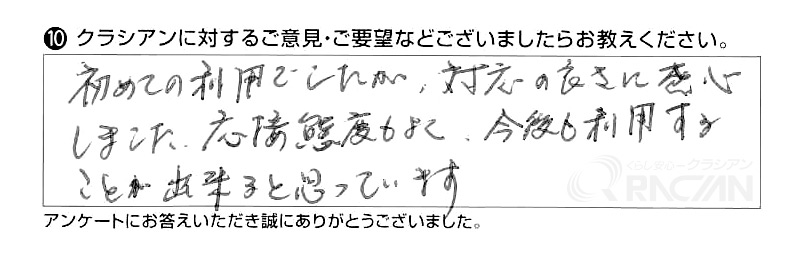 ⑩ クラシアンに対するご意見・ご要望などございましたらお教えください。
初めての利用でしたが、対応の良さに感心
しました、応接態度もよく、今後も利用する
ことが出来ると思っています
くらし安心 クラシアン
QRACIAN
アンケートにお答えいただき誠にありがとうございました。